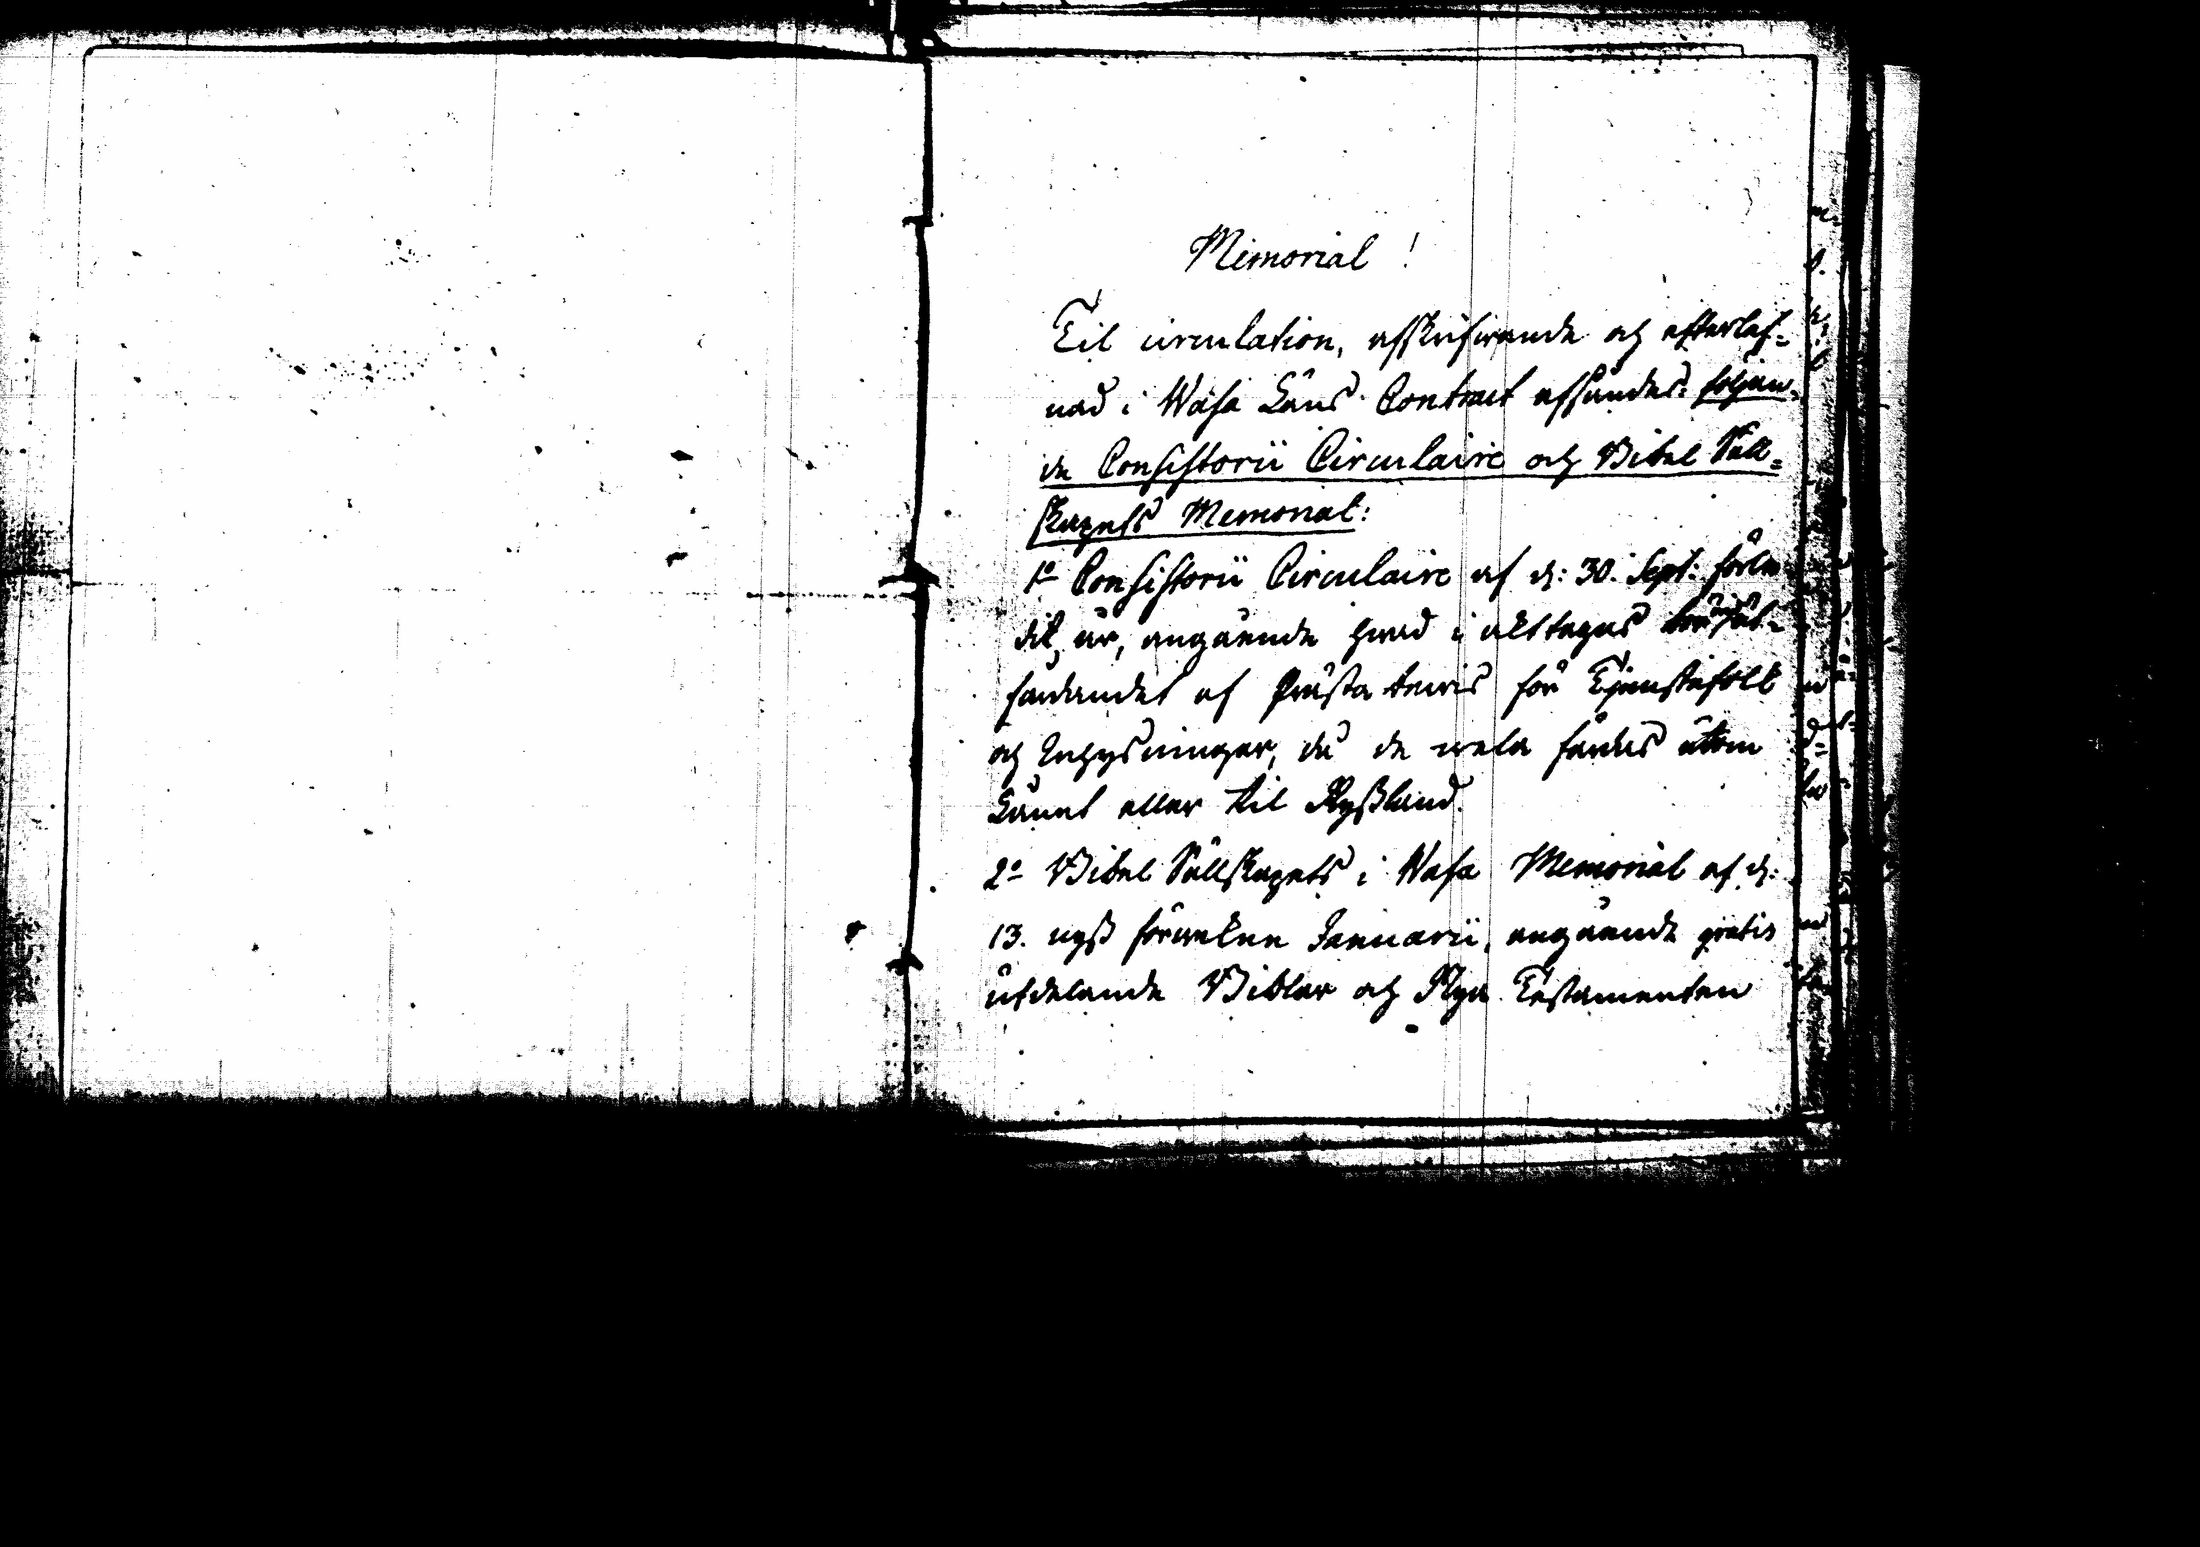 Memorial!
Til circulation, afskrifwande och efterlef=
nad i Wasa Läns Contract afsändes: följan=
de Consistorii Circulaire och Bibel Säll=
skapets Memorial:
1o Consistorii Circulaire af d: 30. Sept: förle=
dit år, angående hwad i akttagas wid ut=
färdandet af Prästa bewis för Tjenstefolk
och Inhysningar, då de wela färdas utom
Länet eller til Ryssland.
2o Bibel Sällskapets i Wasa Memorial af d:
13. nyss förwekne Januarii, angående gratis
utdelande Biblar och Nya Testamenten